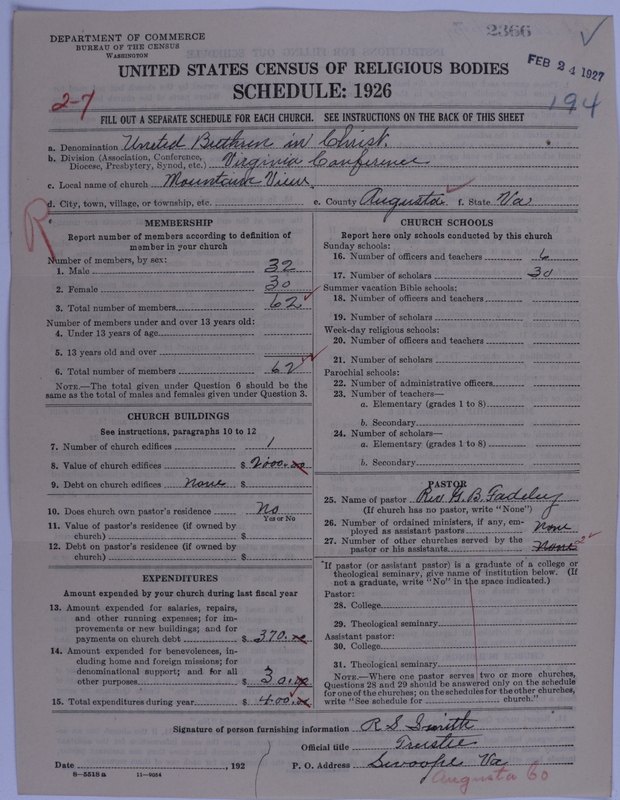 2366
DEPARTMENT OF COMMERCE
BUREAU OF THE CENSUS
WASHINGTON
FEB 24 1927
UNITED STATES CENSUS OF RELIGIOUS BODIES
SCHEDULE: 1926
2-7
194
FILL OUT A SEPARATE SCHEDULE FOR EACH CHURCH. SEE INSTRUCTIONS ON THE BACK OF THIS SHEET
a. Denomination United Brethren in Christ.
b. Division (Association, Conference, Diocese, Presbytery, Synod, etc.) Virginia Conference
c. Local name of church Mountain View
d. City, town, village, or township, etc. e. County Augusta f. State Va
R
MEMBERSHIP
Report number of members according to definition of
member in your church
Number of members, by sex:
1. Male 32
2. Female 30
3. Total number of members 62
Number of members under and over 13 years old:
4. Under 13 years of age
5. 13 years old and over
6. Total number of members 62
NOTE.—The total given under Question 6 should be the
same as the total of males and females given under Question 3.
CHURCH BUILDINGS
See instructions, paragraphs 10 to 12
7. Number of church edifices 1
8. Value of church edifices $ 2000.00
9. Debt on church edifices None $
10. Does church own pastor's residence No
Yes or No
11. Value of pastor's residence (if owned by
church) $
12. Debt on pastor's residence (if owned by
church) $
EXPENDITURES
Amount expended by your church during last fiscal year
13. Amount expended for salaries, repairs,
and other running expenses; for im-
provements or new buildings; and for
payments on church debt $ 370.00
14. Amount expended for benevolences, in-
cluding home and foreign missions; for
denominational support; and for all
other purposes $ 30.00
15. Total expenditures during year $ 400.00
CHURCH SCHOOLS
Report here only schools conducted by this church
Sunday schools:
16. Number of officers and teachers 6
17. Number of scholars 30
Summer vacation Bible schools:
18. Number of officers and teachers
19. Number of scholars
Week-day religious schools:
20. Number of officers and teachers
21. Number of scholars
Parochial schools:
22. Number of administrative officers
23. Number of teachers—
a. Elementary (grades 1 to 8)
b. Secondary
24. Number of scholars—
a. Elementary (grades 1 to 8)
b. Secondary
PASTOR
25. Name of pastor Rev G. B. Fadeley
(If church has no pastor, write "None")
26. Number of ordained ministers, if any, em-
ployed as assistant pastors None
27. Number of other churches served by the
pastor or his assistants None 2
If pastor (or assistant pastor) is a graduate of a college or
theological seminary, give name of institution below. (If
not a graduate, write "No" in the space indicated.)
Pastor:
28. College
29. Theological seminary
Assistant pastor:
30. College
31. Theological seminary
NOTE.—Where one pastor serves two or more churches,
Questions 28 and 29 should be answered only on the schedule
for one of the churches; on the schedules for the other churches,
write "See schedule for church."
Signature of person furnishing information R S Smith
Official title Trustee
Date , 192 P. O. Address Swoope Va
8—5518a 11—9054
Augusta Co